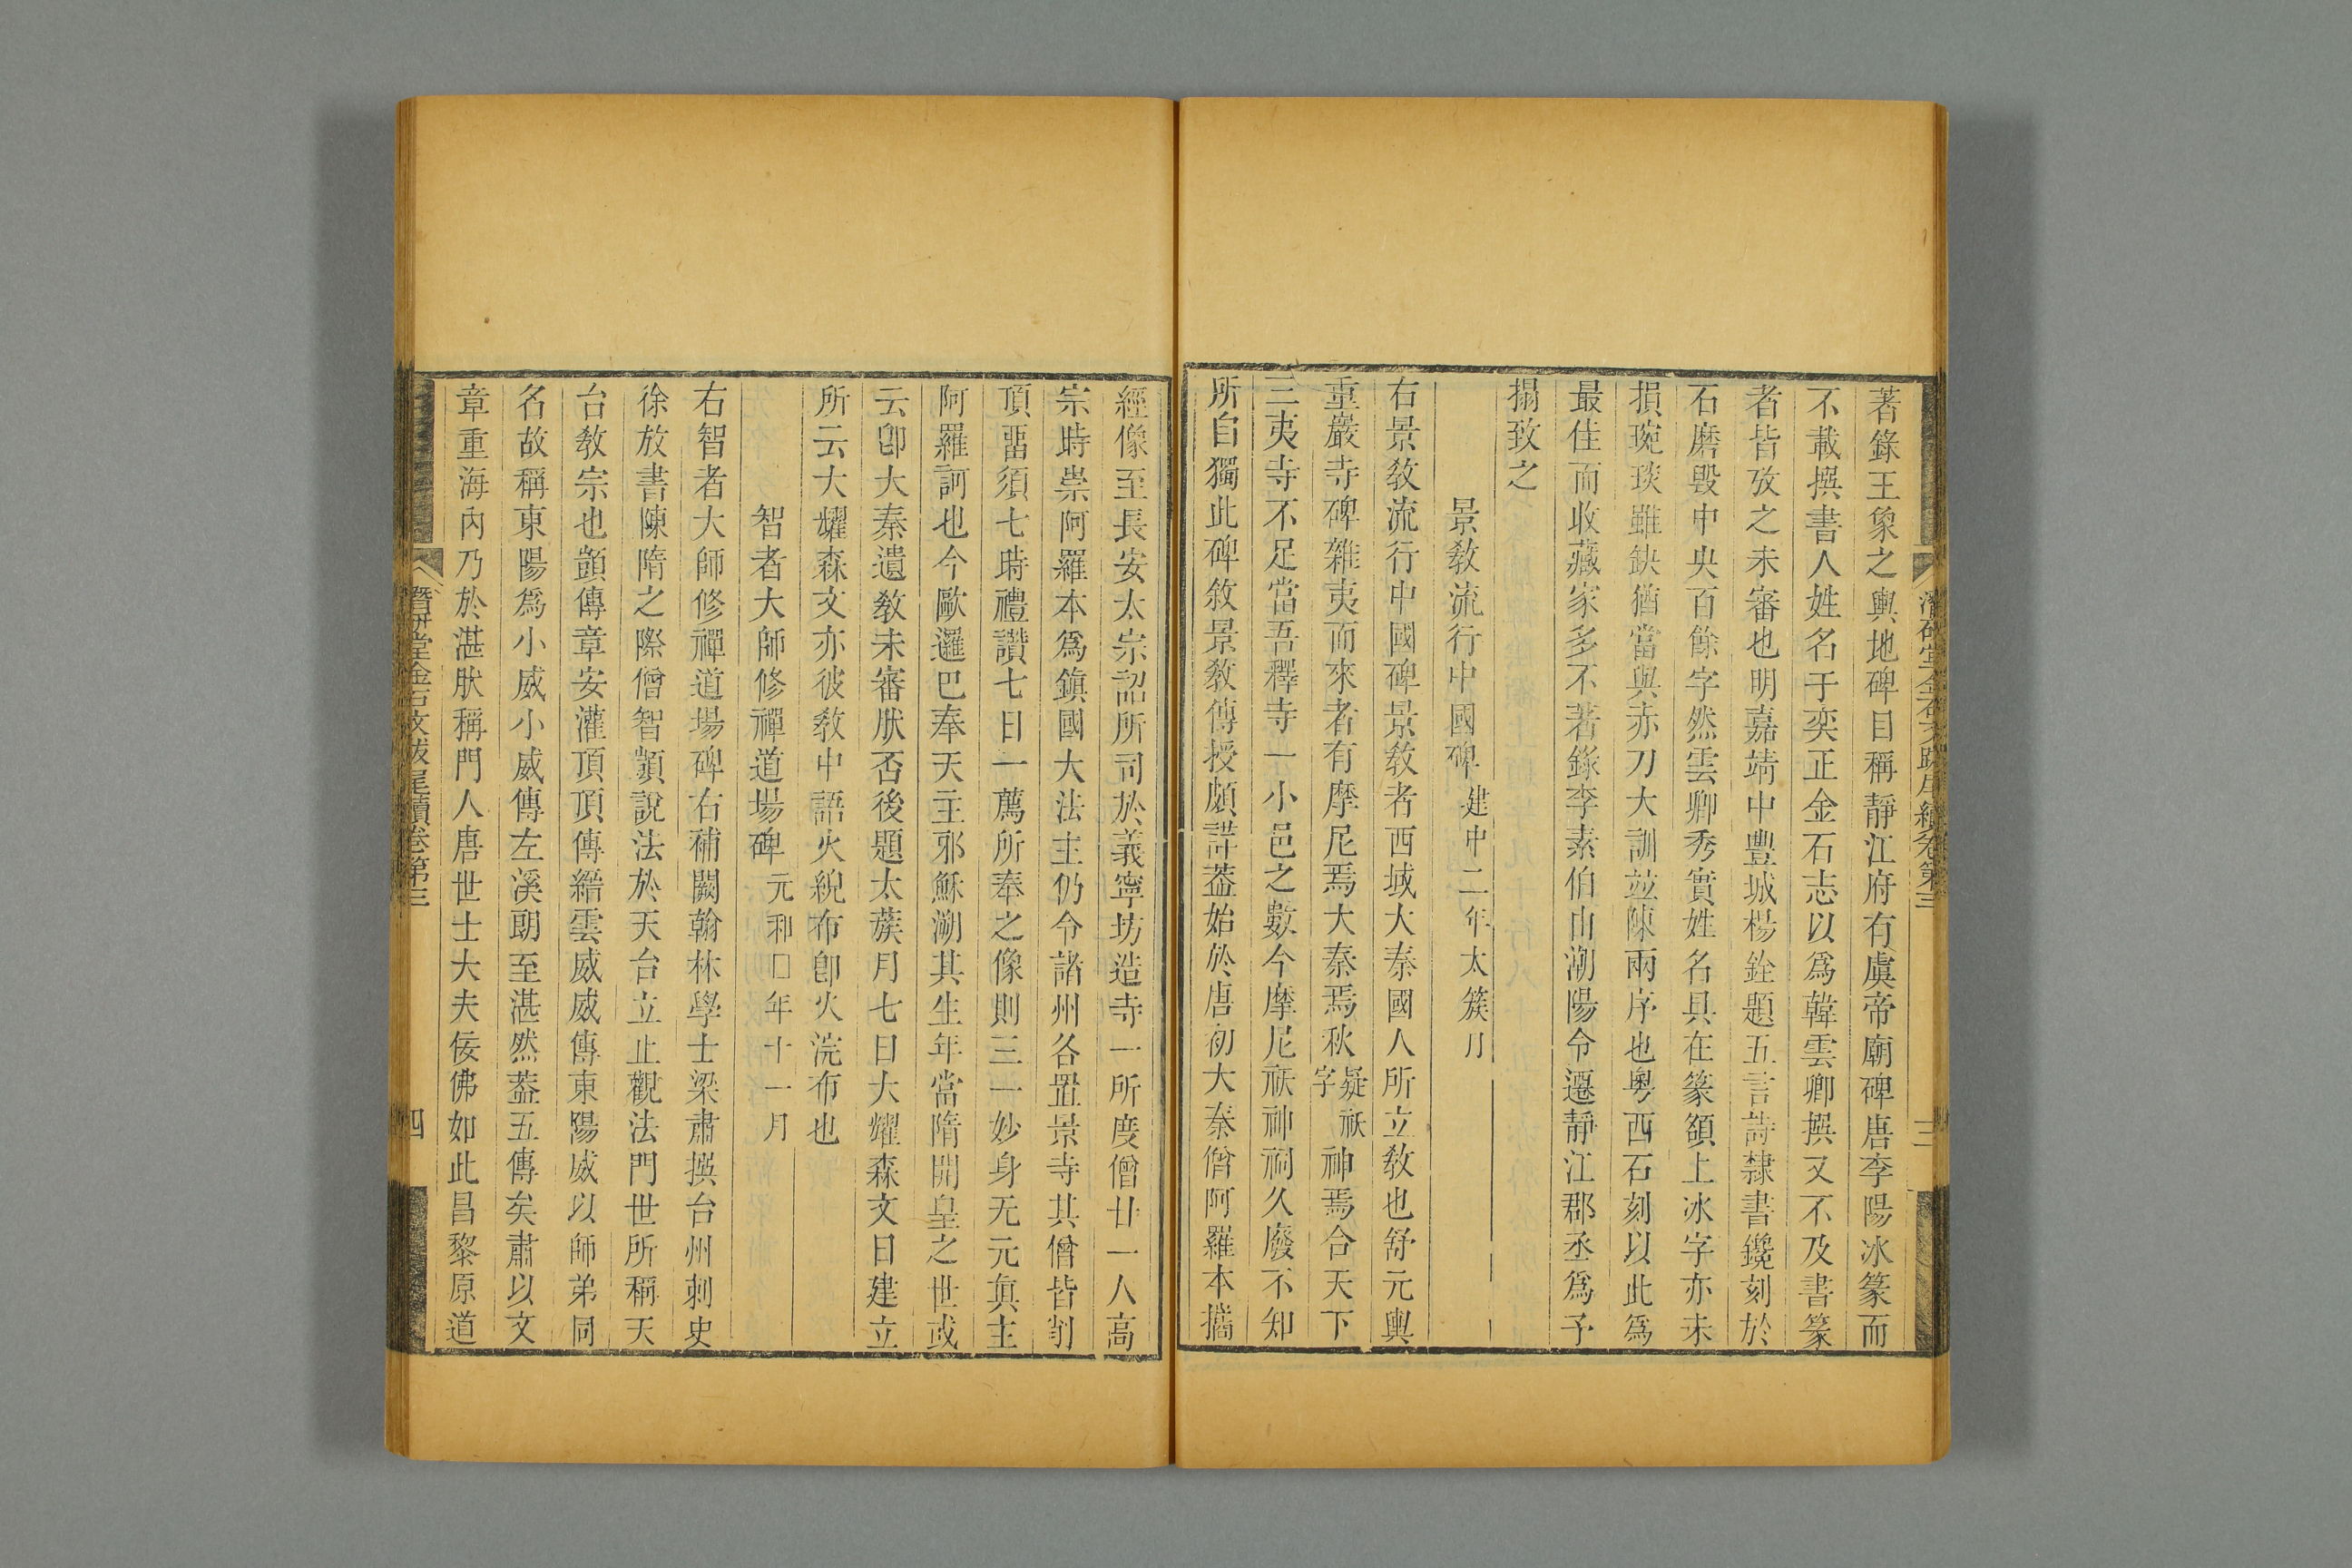 著錄王象之輿地碑目稱靜江府有虞帝廟碑唐李陽冰篆而
不載撰書人姓名于奕正金石志以爲韓雲卿撰又不及書篆
者皆攷之未審也明嘉靖中豐城楊銓題五言詩隸書鑱刻於
石磨毀中央百餘字然雲卿秀實姓名具在篆額上冰字亦未
損琬琰雖缺猶當與赤刀大訓竝陳兩序也粵西石刻以此爲
最佳而收藏家多不著錄李素伯由潮陽令遷靜江郡丞爲予
搨致之
景敎流行中國碑 建中二年太簇月
右景敎流行中國碑景敎者西域大秦國人所立敎也舒元輿
重巖寺碑雜夷而來者有摩尼焉大秦焉秋疑祅字神焉合天下
三夷寺不足當吾釋寺一小邑之數今摩尼祅神祠久廢不知
所自獨此碑敘景敎傳授頗詳葢始於唐初大秦僧阿羅本攜
經像至長安太宗詔所司於義寧坊造寺一所度僧廿一人高
宗時崇阿羅本爲鎭國大法主仍令諸州各置景寺其僧皆削
頂畱須七時禮讚七日一薦所奉之像則三一妙身无元眞主
阿羅訶也今歐邏巴奉天主邪穌溯其生年當隋開皇之世或
云卽大秦遺敎未審肰否後題太蔟月七日大耀森文日建立
所云大耀森文亦彼敎中語火䋦布卽火浣布也
智者大師修禪道場碑 元和□年十一月
右智者大師修禪道場碑右補闕翰林學士梁肅撰台州刺史
徐放書陳隋之際僧智顗說法於天台立止觀法門世所稱天
台敎宗也顗傳章安灌頂頂傳縉雲威威傳東陽威以師弟同
名故稱東陽爲小威小威傳左溪朗至湛然葢五傳矣肅以文
章重海內乃於湛肰稱門人唐世士大夫佞佛如此昌黎原道
潛硏堂金石文跋尾續卷第三
四
潛硏堂金石文跋尾續卷第三
三